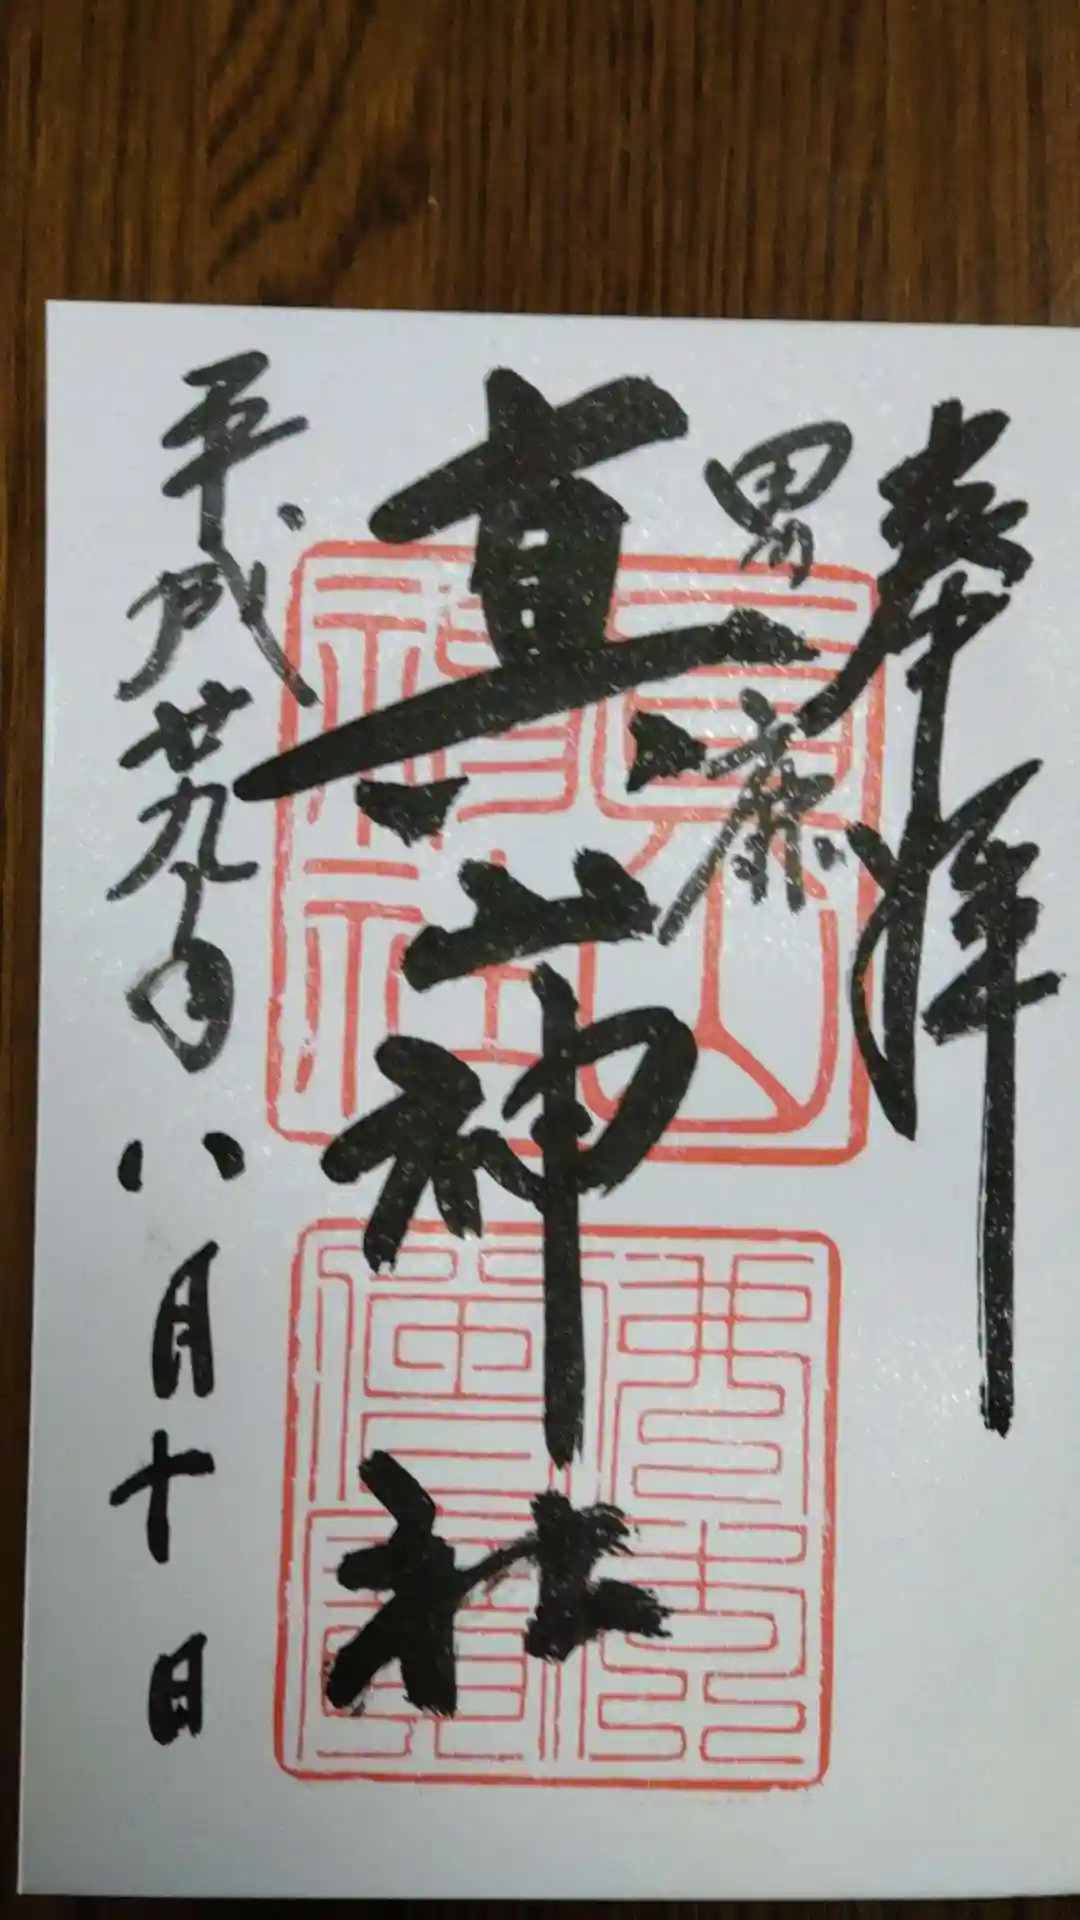 奉拝
男鹿
真山神社
平成廿九年
八月十日